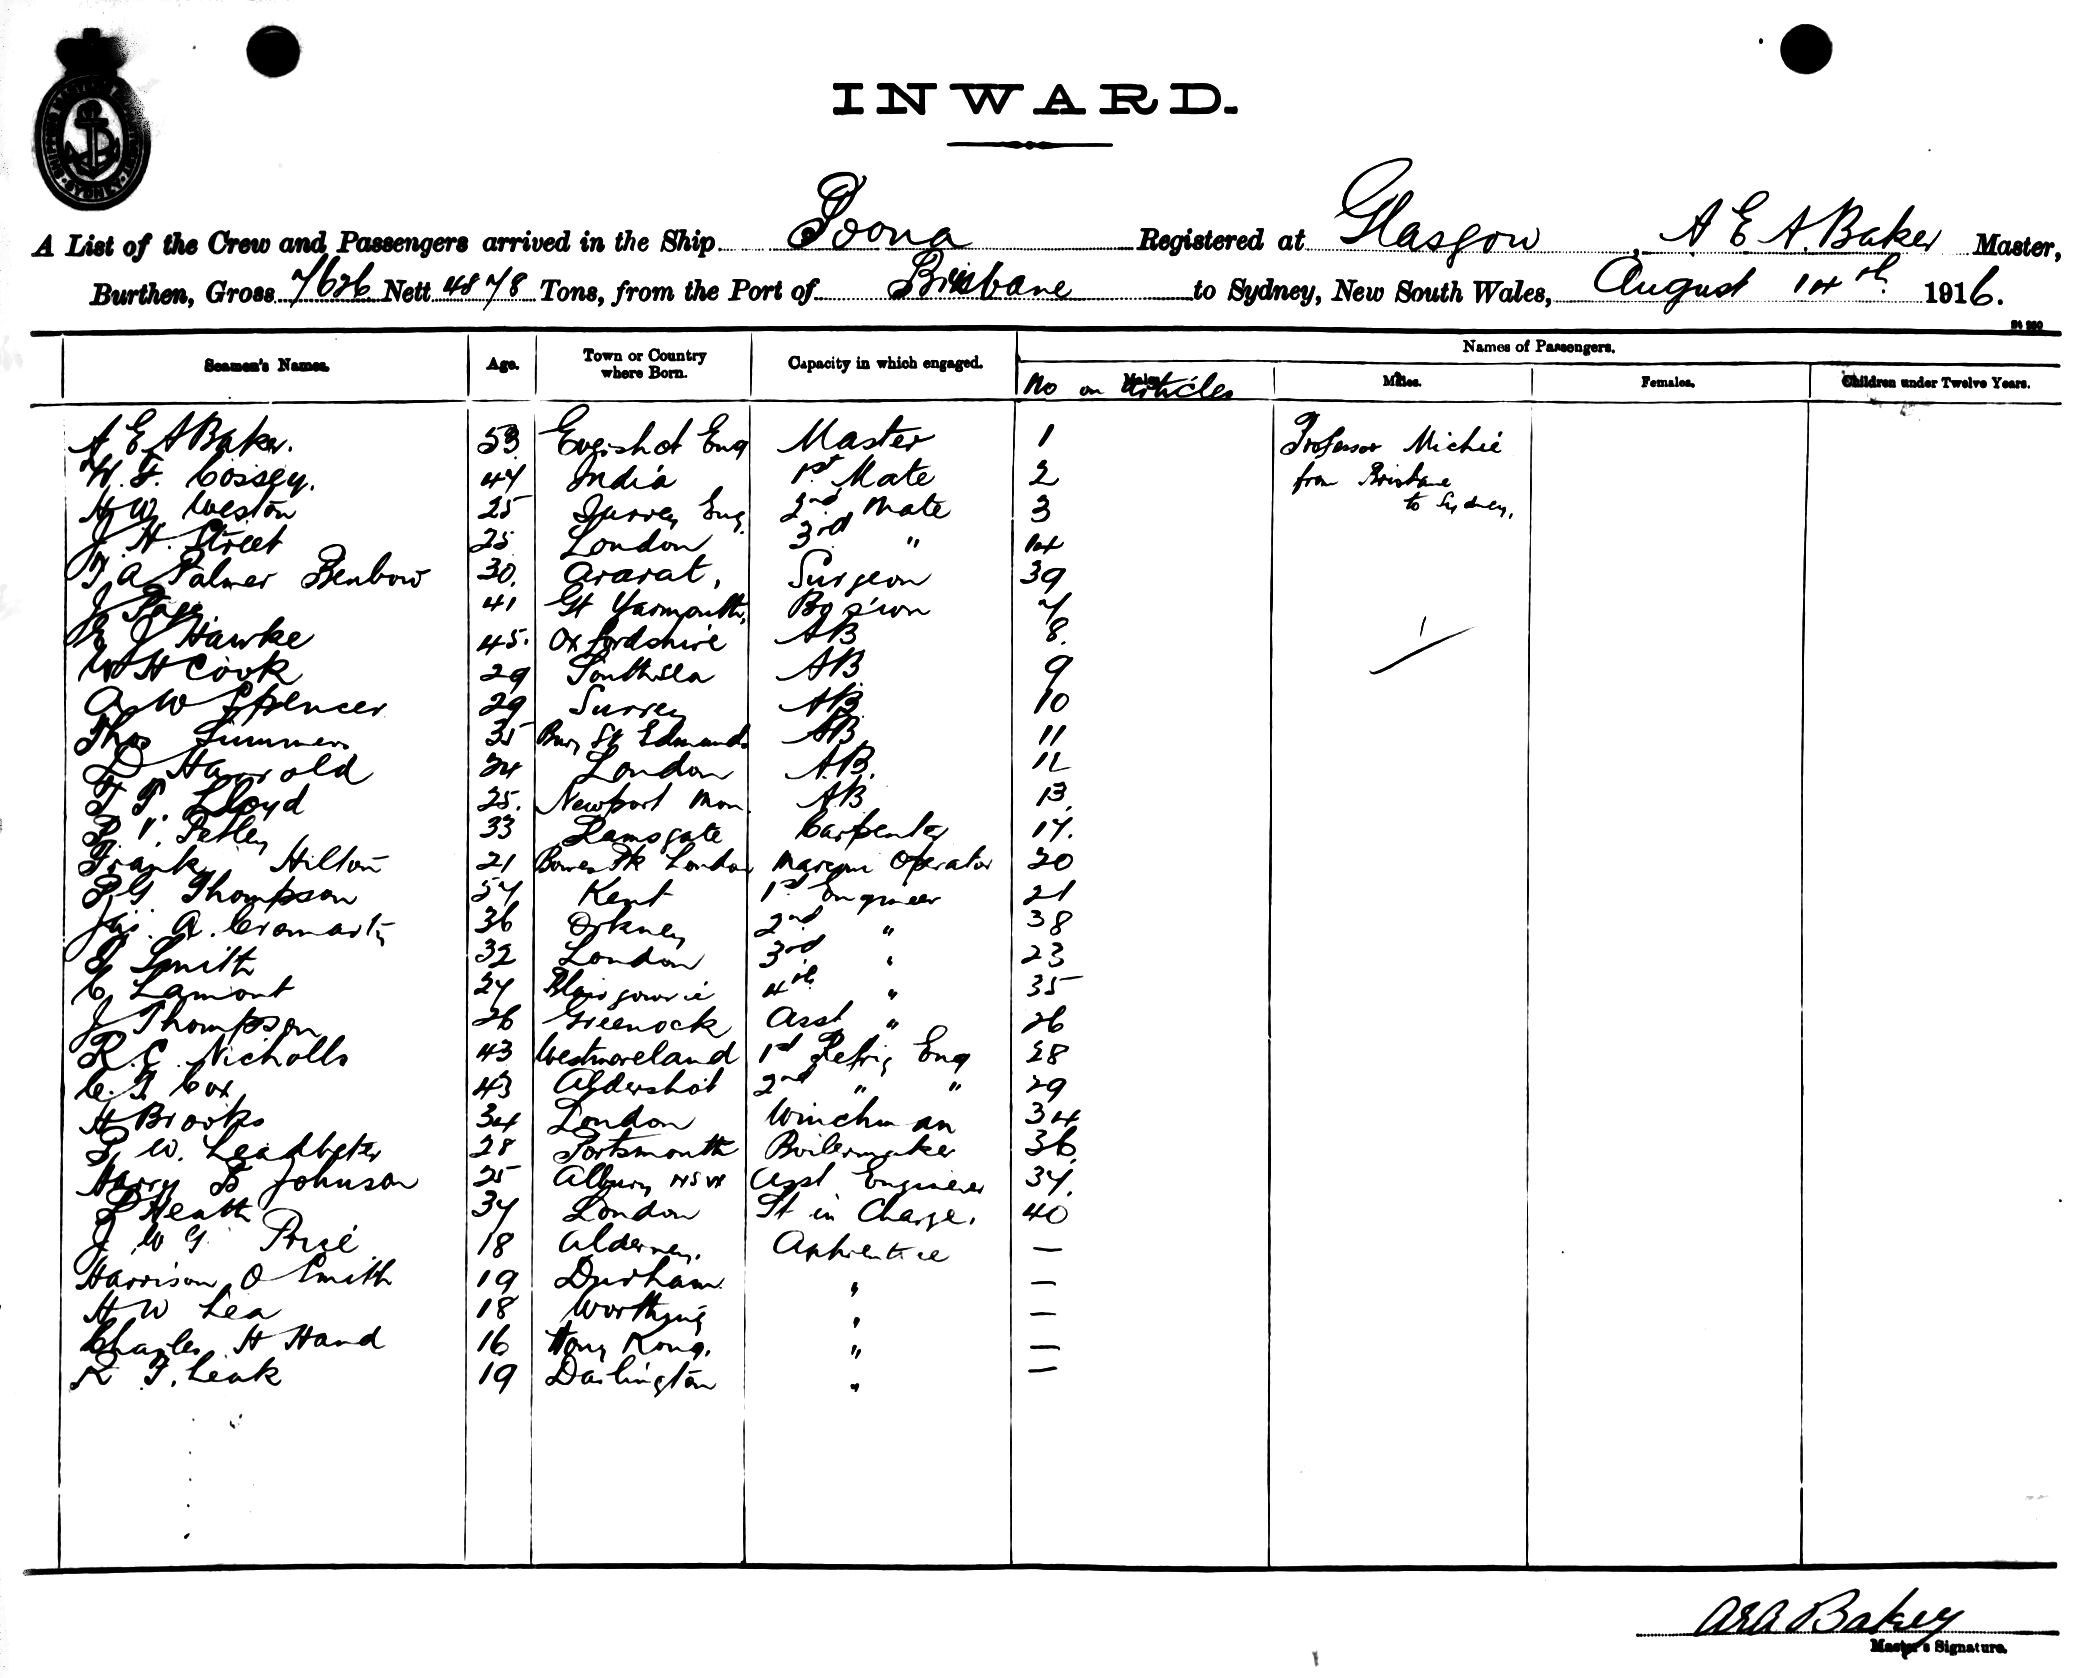 INWARD.
A List of the Crew and Passengers arrived in the Ship Poona Registered at Glasgow, A E A. Baker Master,
Burthen, Gross 7626 Nett 4878 Tons, from the Port of Brisbane to Sydney, New South Wales, August 14th 1916.
Names of Passengers.
Seamen's Names. Age. Town or Country where Born. Capacity in which engaged. Males. No on Articles Males. Females. Children under Twelve Years.
A E A Baker. 53 Master 1 Professor Michie
W. F. Cossey. 47 India 1st Mate 2 from Brisbane
H W Weston 25 Surrey Eng. 2nd Mate 3 to Sydney.
J. H. Street 25 London 3rd " 14
T A Palmer Benbow 30. Ararat, Surgeon 39
J Page 41 Gt Yarmouth. Bos'wn 7
E J Hawke 45. Oxfordshire AB 8.
W H Cook 29 Southsea AB 9
A W Spencer 29 Surrey AB 10
Thos Summers 35 Bury St Edmunds AB 11
D Harrold 24 London A.B. 12
F P Lloyd 25. Newport Mon. AB 13
P. V. Petley 33 Ramsgate Carpenter 17.
Frank Hilton 21 Bowes Pk London Marconi Operator 20
P G Thompson 57 Kent 1st Engineer 21
Jas. A. Cromarty 36 Orkney 2nd " 38
P Smith 32 London 3rd " 23
C Lamont 27 Blairgowrie 4th " 35
J Thompson 26 Greenock Asst " 26
R. E. Nicholls 43 Westmoreland 1st Refrig Eng 28
C. F. Cox 43 Aldershot 2nd " " 29
H Brooks 34 London Winchman 34
P. W. Leadbeter 28 Portsmouth Boilermaker 36
Harry B Johnson 25 Albury NSW Asst Engineer 37.
P Heath 37 London St in Charge. 40
J W G 18 Alderney. Apprentice —
Harrison O Smith 19 Durham " —
H W Lea 18 Worthing " —
Charles H Hand 16 Hong Kong. " —
R F. Leak 19 Darlington " —
AEA Baker
Master's Signature.